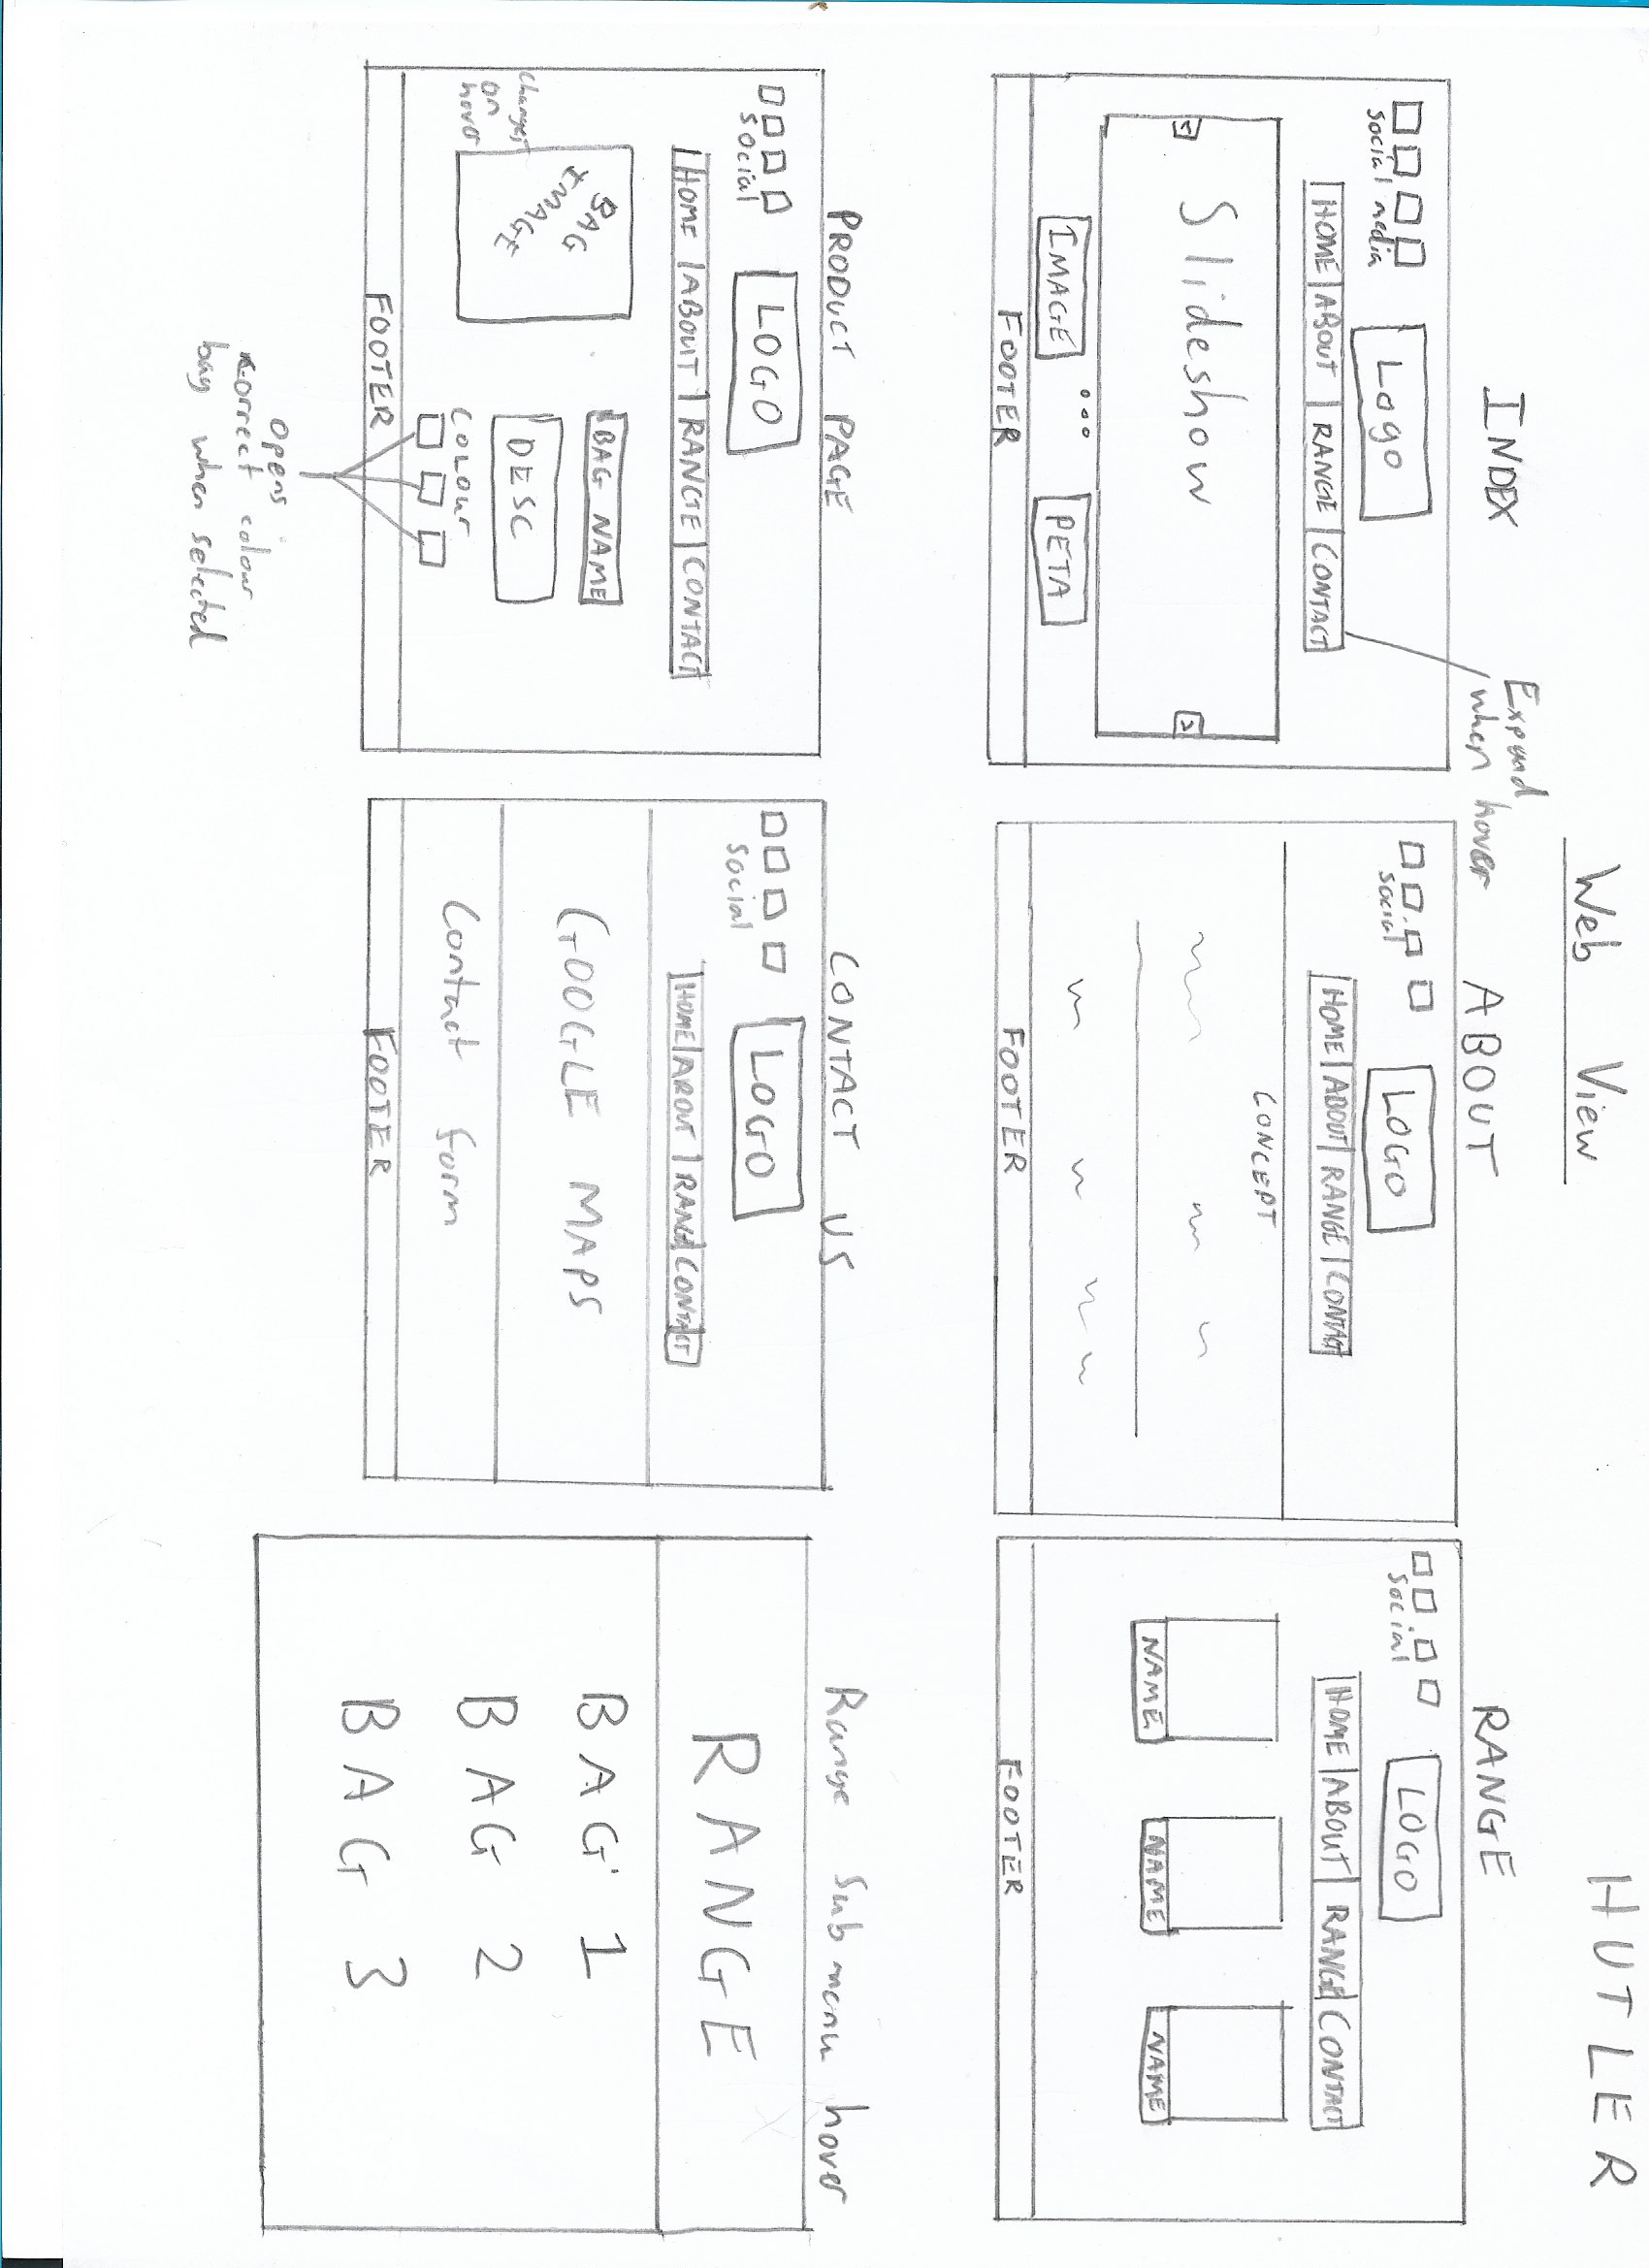 Web View
HUTLER
INDEX
Expand
when hover
social media
Logo
HOME ABOUT RANGE CONTACT
Slideshow
IMAGE
PETA
FOOTER
ABOUT
social
LOGO
HOME ABOUT RANGE CONTACT
CONCEPT
FOOTER
RANGE
social
LOGO
HOME ABOUT RANGE CONTACT
NAME NAME NAME
FOOTER
PRODUCT PAGE
social
LOGO
HOME ABOUT RANGE CONTACT
BAG
IMAGE
Changes
on
hover
BAG NAME
DESC
COLOUR
FOOTER
Opens
correct colour
bag when selected
CONTACT US
social
LOGO
HOME ABOUT RANGE CONTACT
GOOGLE MAPS
Contact form
FOOTER
Range Sub menu hover
RANGE
BAG 1
BAG 2
BAG 3